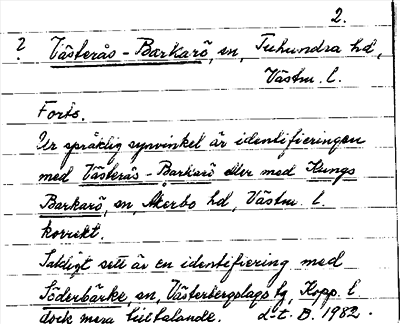 2.
? Västerås-Barkarö, sn, Tuhundra hd,
Västm. l.
Forts.
Ur språklig synvinkel är identifieringen
med Västerås-Barkarö eller med Kungs
Barkarö, sn, Åkerbo hd, Västm. l.
korrekt.
Sakligt sett är en identifiering med
Söderbärke, sn, Västerbergslags fg, Kopp. l
dock mera tilltalande. d-t. B. 1982.